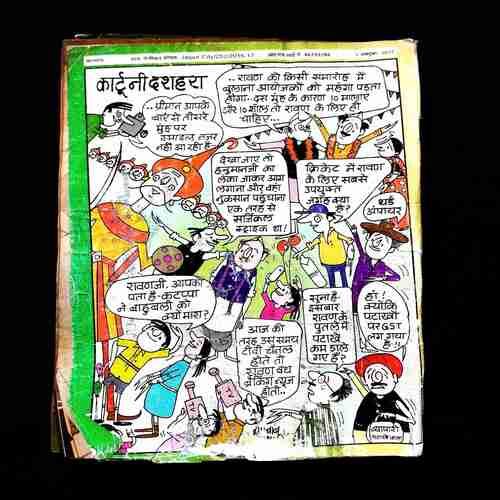 कार्टूनी दशहरा
..रावण को किसी समारोह में
बुलाना आयोजकों को महंगा पड़ता
होगा..दस मुंह के कारण 10 मालाएं
और 10 शॉल तो रावण के लिए ही
चाहिए...
..श्रीमान आपके
बाएं से तीसरे
मुंह पर
स्माइल नजर
नहीं आ रही है
देखा जाए तो
हनुमानजी का
लंका जाकर आग
लगाना और वहां
नुकसान पहुंचाना
एक तरह से
सर्जिकल
स्ट्राइक था!
क्रिकेट में रावण
के लिए सबसे
उपयुक्त
जगह क्या है?
थर्ड
अंपायर
रावणजी, आपको
पता है-कटप्पा
ने बाहुबली को
क्यों मारा?
आज की
तरह उस समय
टीवी चैनल
होते तो
रावण वध
ब्रेकिंग न्यूज
होती..
सुना है
इस बार
रावण के
पुतले में
पटाखे
कम डाले
गए हैं?
हां!
क्योंकि
पटाखों
पर GST
लग गया
है!!
व्यापारी